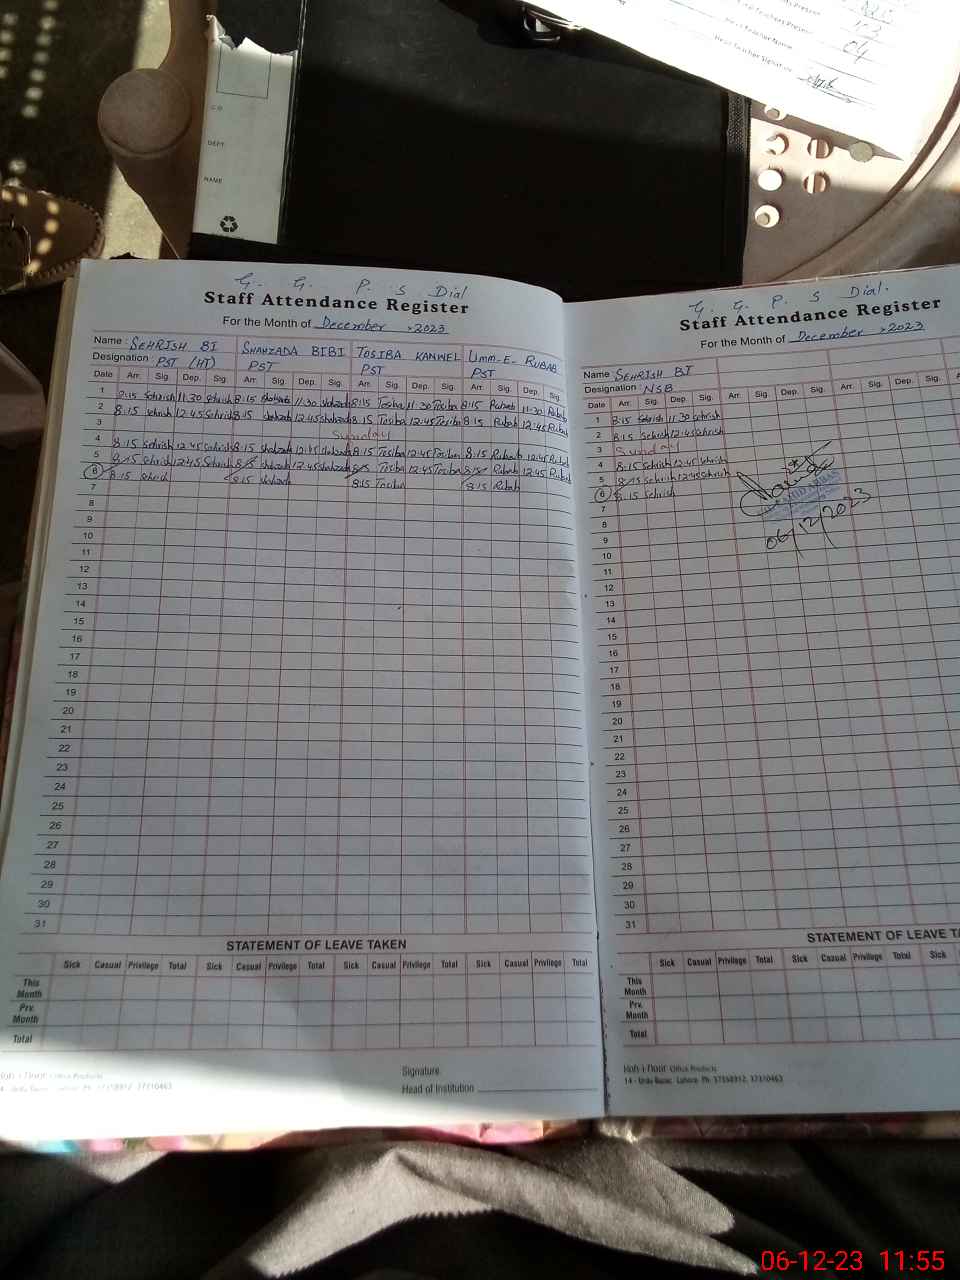 C.O
DEPT.
NAME
04
G. G. P. S Dial
Staff Attendance Register
For the Month of December , 2023
Name : SEHRISH BI SHAHZADA BIBI TOSIBA KANWEL UMM-E-RUBAB
Designation : PST (HT) PST PST PST
Date Arr. Sig. Dep. Sig. Arr. Sig. Dep. Sig. Arr. Sig. Dep. Sig. Arr. Sig. Dep. Sig.
1 8:15 Sehrish 11:30 Sehrish 8:15 Shahzada 11:30 Shahzada 8:15 Tosiba 11:30 Tosiba 8:15 Rubab 11:30 Rubab
2 8:15 Sehrish 12:45 Sehrish 8:15 Shahzada 12:45 Shahzada 8:15 Tosiba 12:45 Tosiba 8:15 Rubab 12:45 Rubab
3 Sunday
4 8:15 Sehrish 12:45 Sehrish 8:15 Shahzada 12:45 Shahzada 8:15 Tosiba 12:45 Tosiba 8:15 Rubab 12:45 Rubab
5 8:15 Sehrish 12:45 Sehrish 8:15 Shahzada 12:45 Shahzada 8:15 Tosiba 12:45 Tosiba 8:15 Rubab 12:45 Rubab
6 8:15 Sehrish 8:15 Shahzada 8:15 Tosiba 8:15 Rubab
7
8
9
10
11
12
13
14
15
16
17
18
19
20
21
22
23
24
25
26
27
28
29
30
31
STATEMENT OF LEAVE TAKEN
Sick Casual Privilege Total Sick Casual Privilege Total Sick Casual Privilege Total Sick Casual Privilege Total
This
Month
Prv.
Month
Total
Signature
Head of Institution
Office Products
14 - Urdu Bazar, Lahore. Ph: 37358912, 37310463
G. G. P. S Dial.
Staff Attendance Register
For the Month of December , 2023
Name SEHRISH BI
Designation : NSB
Date Arr. Sig. Dep. Sig. Arr. Sig. Dep. Sig. Arr. Sig. Dep. Sig.
1 8:15 Sehrish 11:30 Sehrish
2 8:15 Sehrish 12:45 Sehrish
3 Sunday
4 8:15 Sehrish 12:45 Sehrish
5 8:15 Sehrish 12:45 Sehrish
6 8:15 Sehrish
06/12/2023
7
8
9
10
11
12
13
14
15
16
17
18
19
20
21
22
23
24
25
26
27
28
29
30
31
STATEMENT OF LEAVE
Sick Casual Privilege Total Sick Casual Privilege Total Sick
This
Month
Prv.
Month
Total
Office Products
14 - Urdu Bazar, Lahore. Ph: 37358912, 37310463
06-12-23 11:55